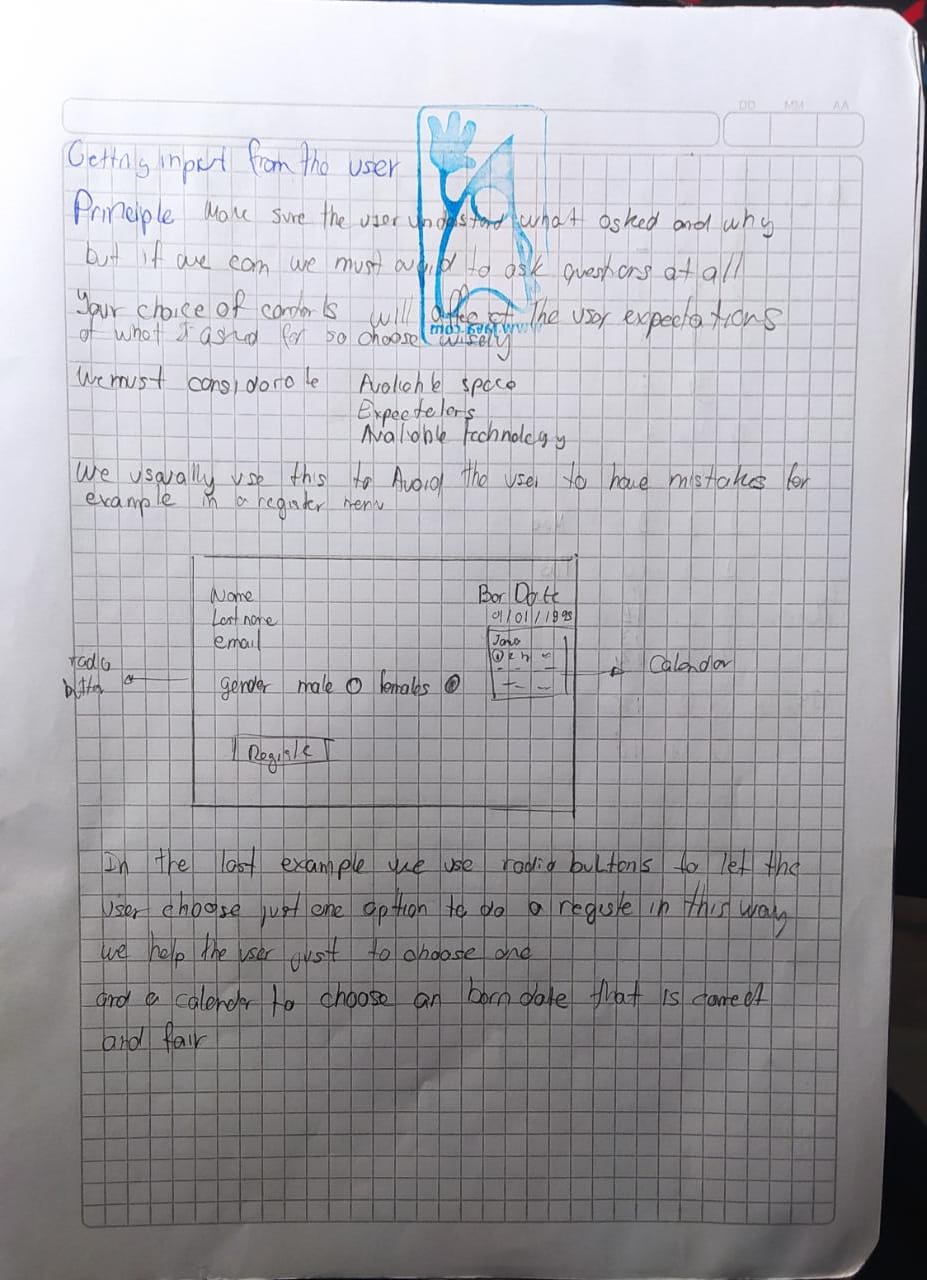 DD MM AA
Getting input from the user
Principle Make sure the user understand what asked and why
but if we can we must avoid to ask questions at all
Your choice of controls will affect The user expectations
of what I asked for so choose wisely
We must considerate Available space
Expectators
Avaliable technology
We usually use this to Avoid the user to have mistakes for
example in a register menu
Name
Last name
email
gender male females
Born Date
01/01/1995
radio
button
Calendar
Register
In the last example we use radio buttons to let the
user choose just one option to do a registe in this way
we help the user just to choose one
and a calender to choose an born date that is correct
and fair